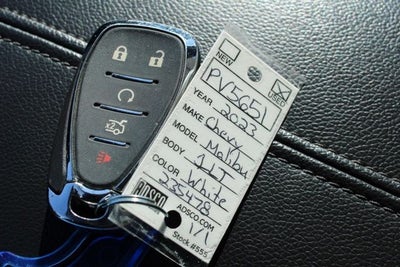 NEW
USED
PV5651
YEAR 2023
MAKE Chevy
MODEL Malibu
BODY 1LT
COLOR White
235478
ADSCO
ADSCO.COM
1/1
Stock #555